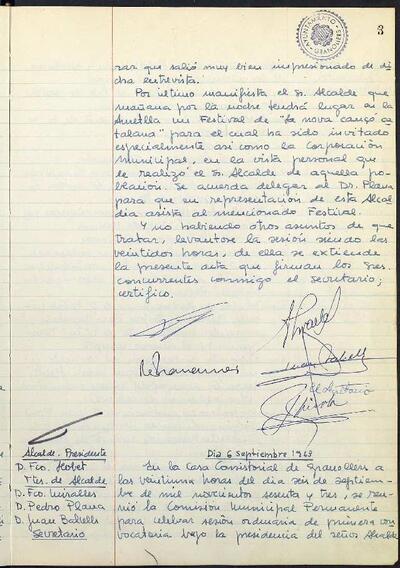 AYUNTAMIENTO
3
zar que salió muy bien impresionado de di-
cha entrevista.
Por último manifiesta el Sr. Alcalde que
mañana por la noche tendrá lugar en la
Ametlla un Festival de "la nova cançó ca-
talana" para el cual ha sido invitado
especialmente así como la Corporación
Municipal, en la visita personal que
le realizó el Sr. Alcalde de aquella po-
blación. Se acuerda delegar al Dr. Plana
para que en representación de esta Alcal-
día asista al mencionado Festival.
Y no habiendo otros asuntos de que
tratar, levantose la sesión siendo las
veintidos horas, de ella se extiende
la presente acta que firman los Sres.
concurrentes conmigo el secretario;
certifico.
El Secretario
Alcalde-Presidente
D. Fco. Llobet
Ttes. de Alcalde
D. Fco. Miralles
D. Pedro Plana
D. Juan Batlles
Secretario
Dia 6 septiembre 1963
En la Casa Consistorial de Granollers a
las veintiuna horas del día seis de septiem-
bre de mil novecientos sesenta y tres, se reu-
nió la Comisión Municipal Permanente
para celebrar sesión ordinaria de primera con-
vocatoria bajo la presidencia del señor Alcalde